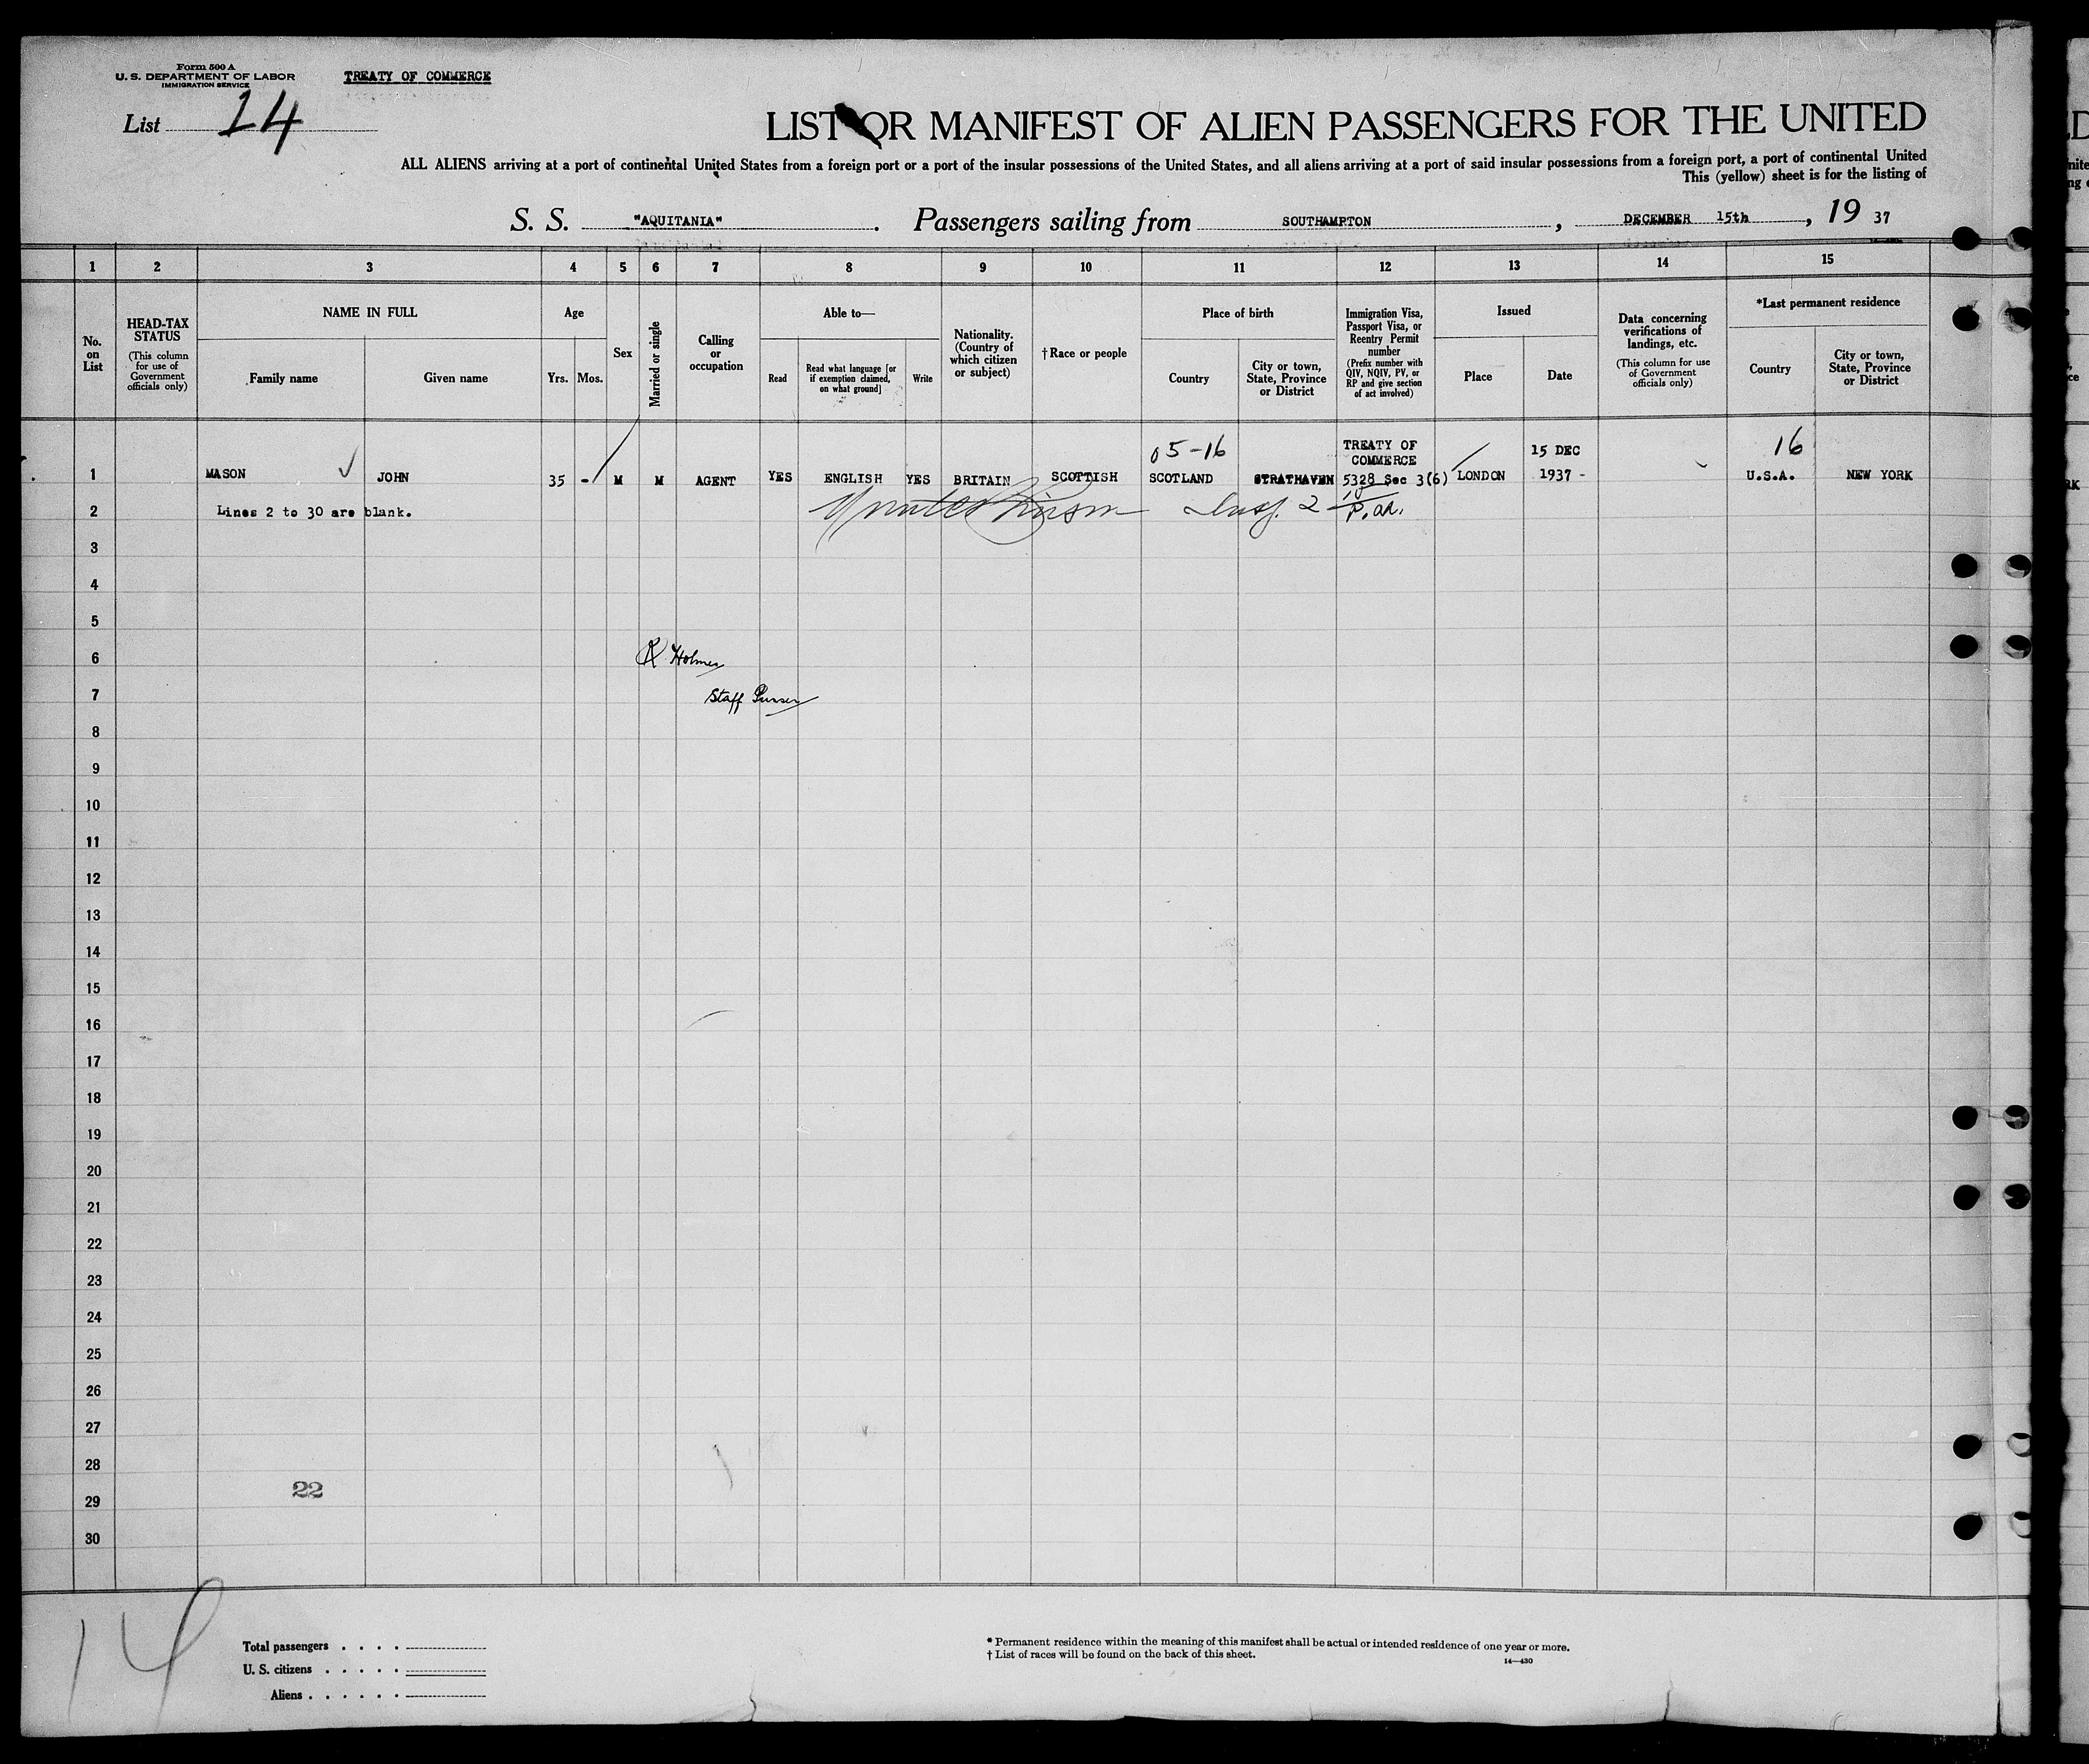 Form 500 A
U. S. DEPARTMENT OF LABOR
IMMIGRATION SERVICE
TREATY OF COMMERCE
List 14
LIST OR MANIFEST OF ALIEN PASSENGERS FOR THE UNITED
ALL ALIENS arriving at a port of continental United States from a foreign port or a port of the insular possessions of the United States, and all aliens arriving at a port of said insular possessions from a foreign port, a port of continental United
This (yellow) sheet is for the listing of
S. S. "AQUITANIA". Passengers sailing from SOUTHAMPTON, DECEMBER 15th, 19 37
1 2 3 4 5 6 7 8 9 10 11 12 13 14 15
No. on List
HEAD-TAX STATUS
(This column for use of Government officials only)
NAME IN FULL
Family name
Given name
Age
Yrs.
Mos.
Sex
Married or single
Calling or occupation
Able to—
Read
Read what language [or if exemption claimed, on what ground]
Write
Nationality. (Country of which citizen or subject)
†Race or people
Place of birth
Country
City or town, State, Province or District
Immigration Visa, Passport Visa, or Reentry Permit number
(Prefix number with QIV, NQIV, PV, or RP and give section of act involved)
Issued
Place
Date
Data concerning verifications of landings, etc.
(This column for use of Government officials only)
*Last permanent residence
Country
City or town, State, Province or District
05-16 TREATY OF COMMERCE 15 DEC 16
1 MASON JOHN 35 - M M AGENT YES ENGLISH YES BRITAIN SCOTTISH SCOTLAND STRATHAVEN 5328 Sec 3(6) LONDON 1937 - U.S.A. NEW YORK
2 Lines 2 to 30 are blank.
3
4
5
6 R Holmes
7 Staff Purser
8
9
10
11
12
13
14
15
16
17
18
19
20
21
22
23
24
25
26
27
28
22
29
30
14
Total passengers
U. S. citizens
Aliens
* Permanent residence within the meaning of this manifest shall be actual or intended residence of one year or more.
† List of races will be found on the back of this sheet.
14—430